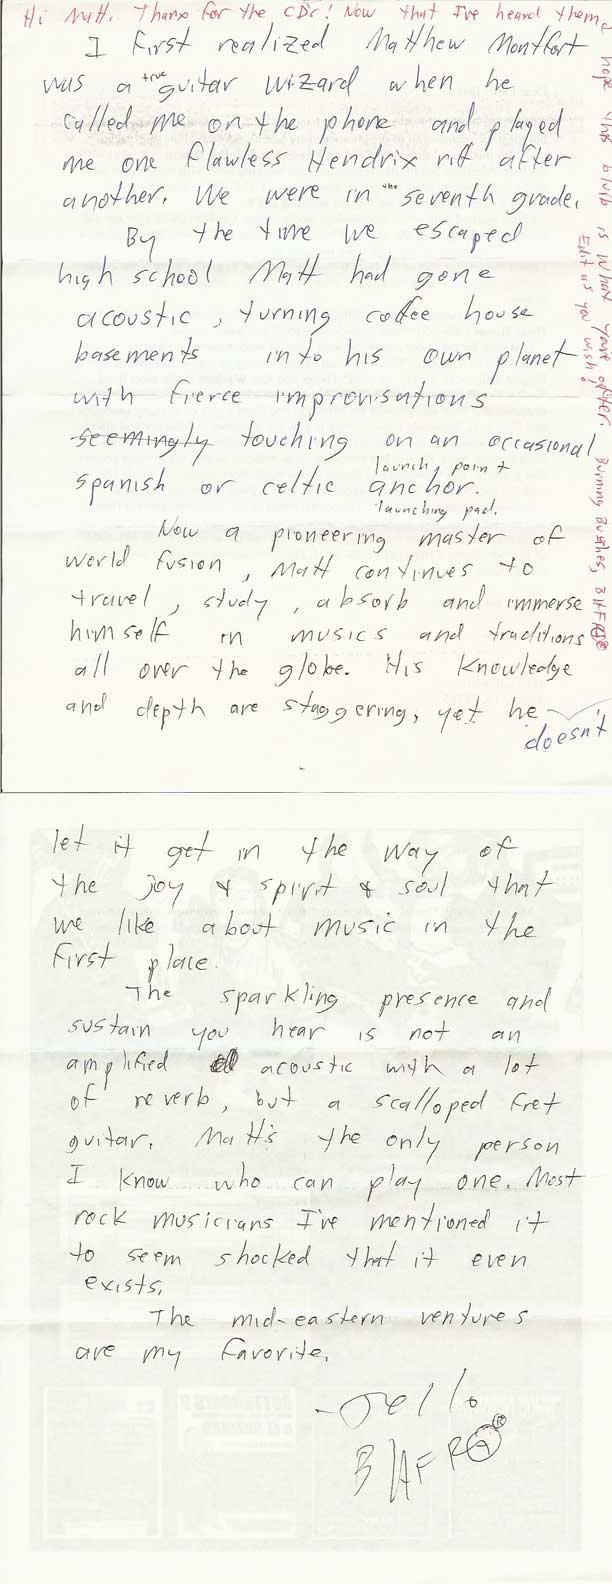 Hi Matt. Thanx for the CDr! Now that I've heard them,
hope this blurb is what you're after.
Edit as you wish!
Burning Bushes, BIAFRA®
I first realized Matthew Montfort
was a true guitar wizard when he
called me on the phone and played
me one flawless Hendrix riff after
another. We were in the seventh grade.
By the time we escaped
high school Matt had gone
acoustic, turning coffee house
basements into his own planet
with fierce improvisations
seemingly touching on an occasional
launch point
spanish or celtic anchor.
launching pad.
Now a pioneering master of
world fusion, Matt continues to
travel, study, absorb and immerse
himself in musics and traditions
all over the globe. His knowledge
and depth are staggering, yet he
doesn't
let it get in the way of
the joy & spirit & soul that
we like about music in the
first place.
The sparkling presence and
sustain you hear is not an
amplified acoustic with a lot
of reverb, but a scalloped fret
guitar. Matt's the only person
I know who can play one. Most
rock musicians I've mentioned it
to seem shocked that it even
exists.
The mid-eastern ventures
are my favorite.
-Jello
BIAFRA®